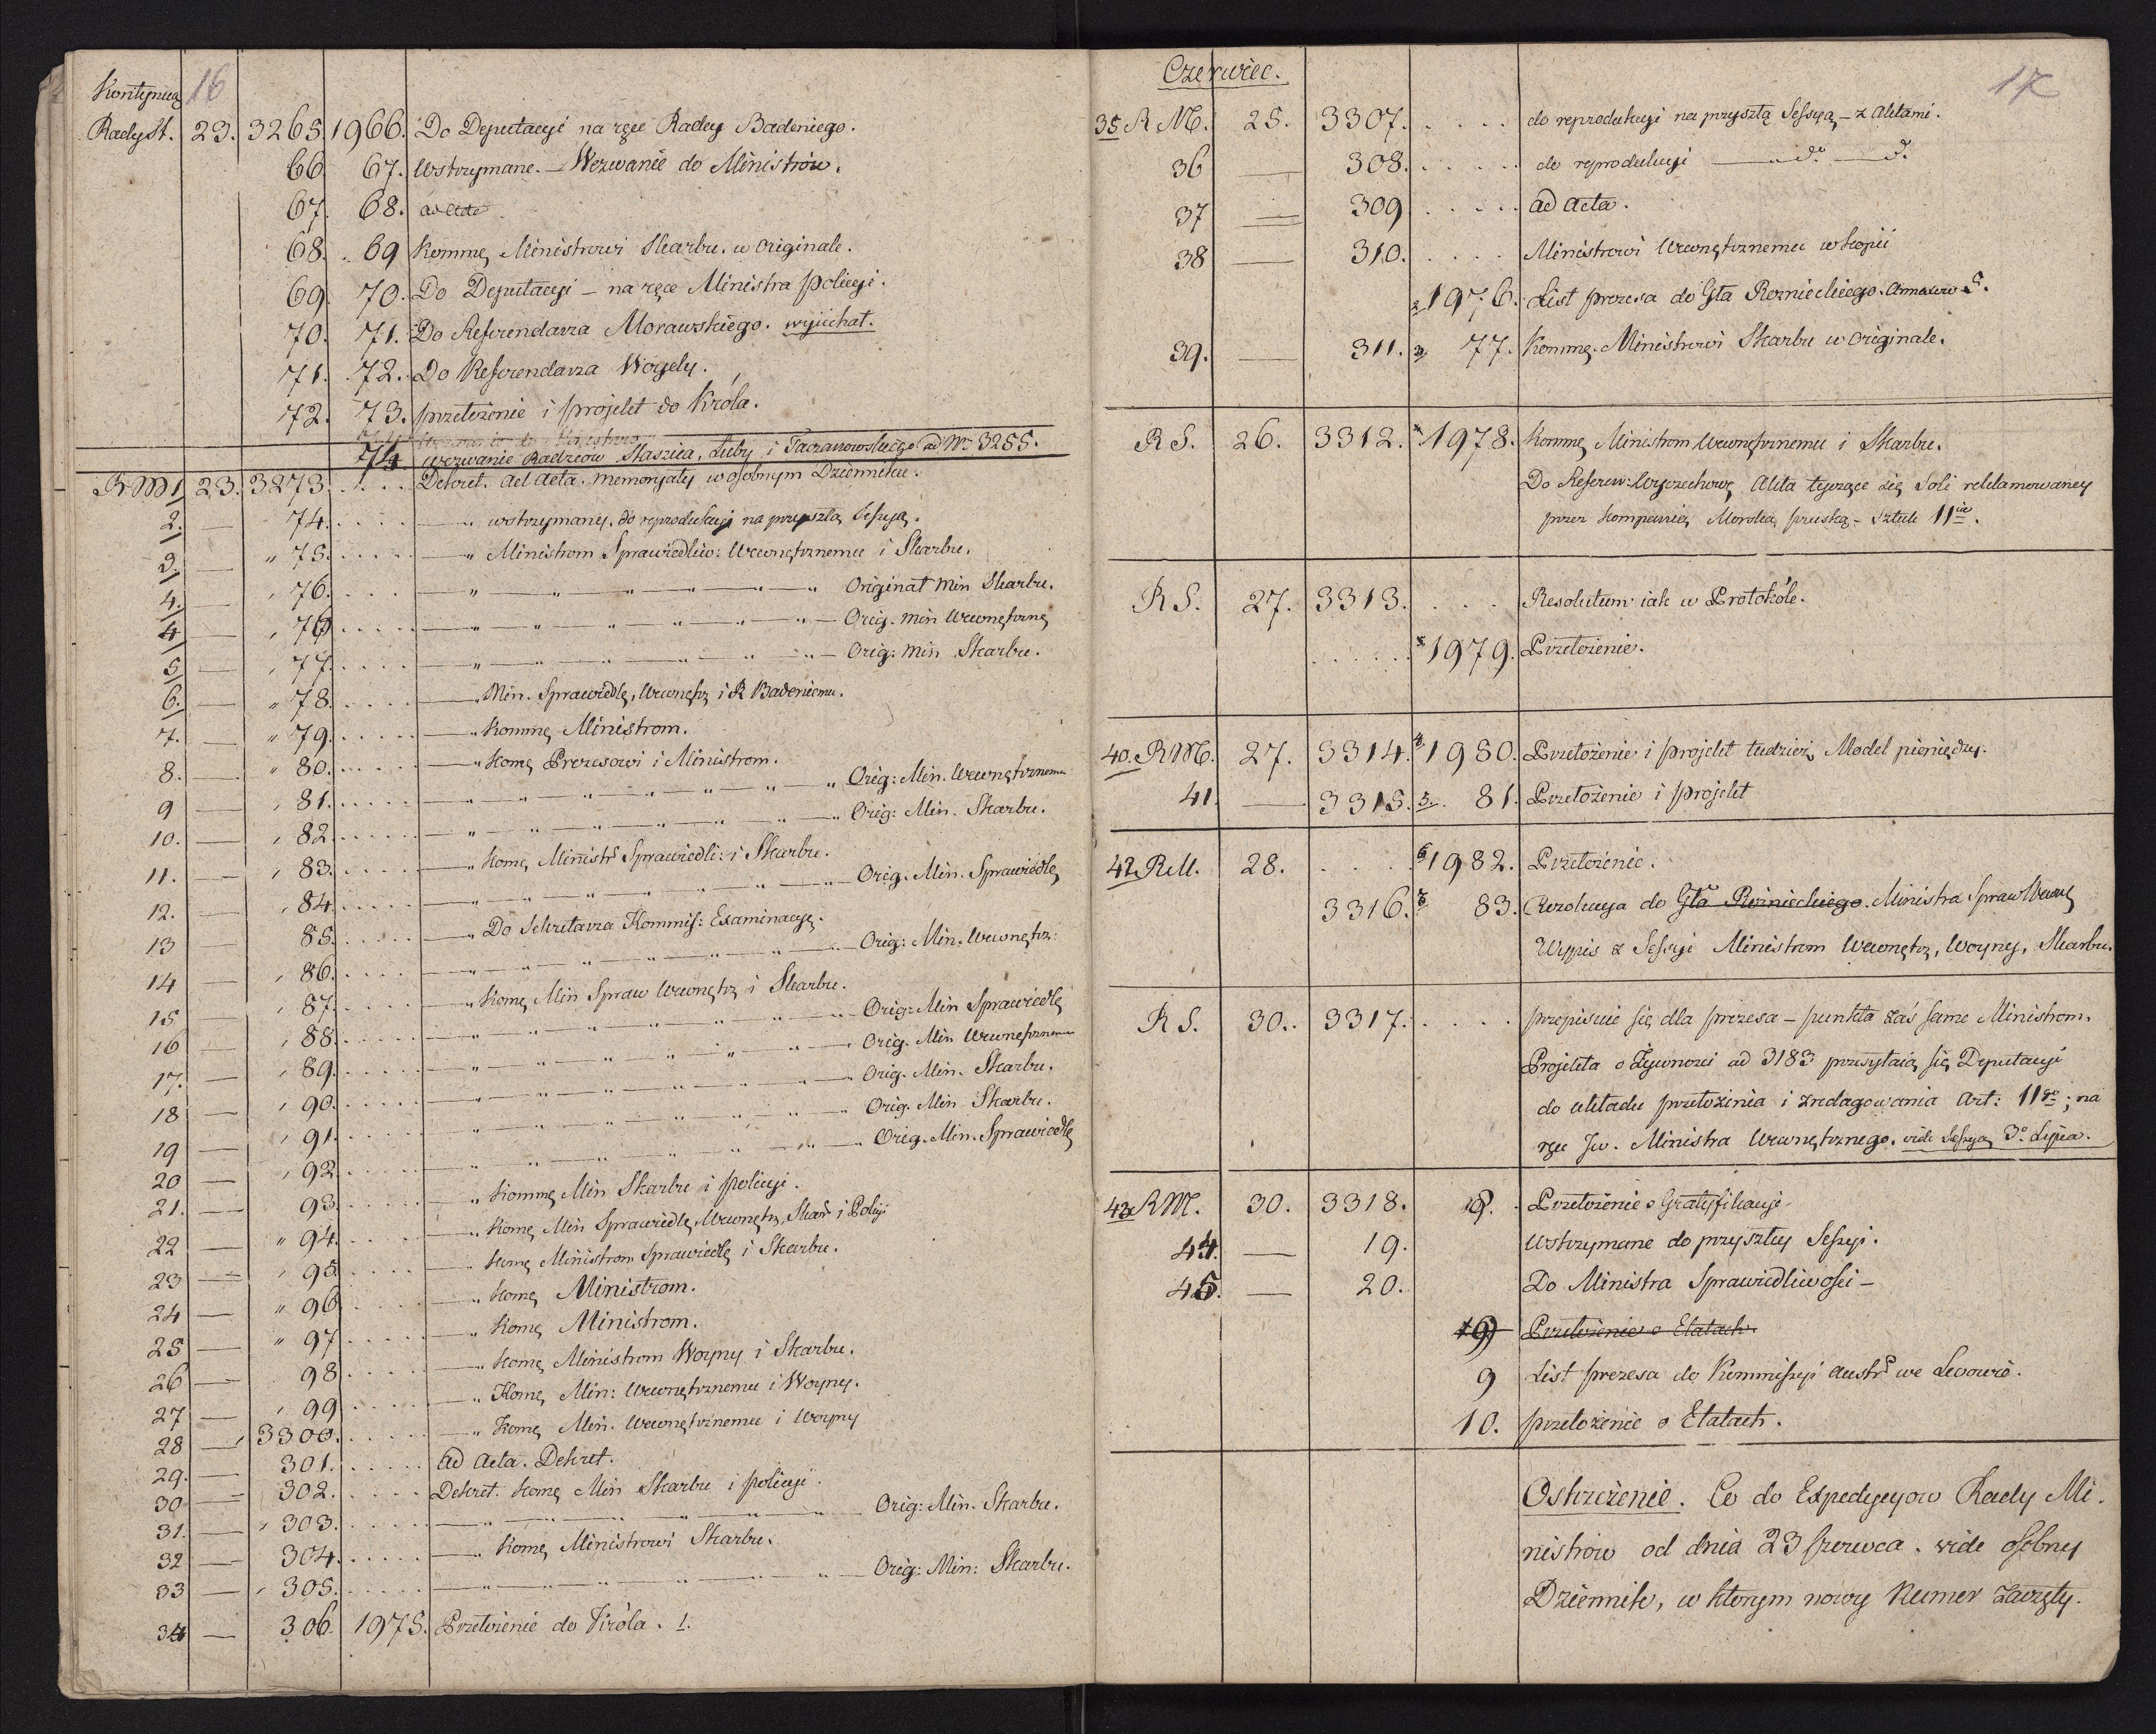 Kontynuą 16
Rady St. 23. 3265. 1966. Do Deputacyi na ręce Radcy Badeniego.
66. 67. Wstrzymane. — Wezwanie do Ministrów.
67. 68. ad Acta
68. 69 Kommę Ministrowi Skarbu. w Originale.
69. 70. Do Deputacyi — na ręce Ministra Policyi.
70. 71. Do Referendarza Morawskiego. wyjichał.
71. 72. Do Referendarza Woysely.
72. 73. przełożenie i projekt do Króla.
74 Wezwanie Radzców Staszica, Łuby i Taczanowskiego ad Nr. 3255.
R M 1 23. 3273. .... Dekret. Ad Acta. memoryały w osobnym Dzienniku.
2. — 74. .... — " wstrzymany. do reprodukcyi na przyszlą Sessyą.
3. — " 75. .... — " Ministrom Sprawiedliw: Wewnętrznemu i Skarbu.
4. — " 76. .... — " — " — " — " — " Originał Min Skarbu.
4 — " 76 .... — " — " — " — " — " — Orig. Min Wewnętrzne
5 — " 77. .... — " — " — " — " — " — Orig: Min Skarbu.
6. — " 78. .... — " Min. Sprawiedlę, Wewnętrz i R Badeniemu.
7. — " 79. .... — " Kommę Ministrom.
8. — " 80. .... — " Komę Prezesowi i Ministrom.
9 — " 81. .... — " — " — " — " — " Orig: Min. Wewnętrznemu
10. — " 82. .... — " — " — " — " — " Orig: Min. Skarbu.
11. — " 83. .... — " Komę Ministr Sprawiedli: i Skarbu.
12. — " 84. .... — " — " — " — " — Orig. Min. Sprawiedlę
13 85. .... — " Do Sekretarza Kommis: Examinacyę.
14 — " 86. .... — " — " — " — " — Orig: Min. Wewnętrz:
15 — " 87. .... — " Komę Min Spraw Wewnętrz i Skarbu.
16 — " 88. .... — " — " — " — " — Orig: Min Sprawiedlę
17. — " 89. .... — " — " — " — " — Orig. Min Wewnętrznemu
18 — " 90. .... — " — " — " — " — Orig. Min. Skarbu.
19 — " 91. .... — " — " — " — " — Orig. Min Skarbu.
20 — " 92. .... — " — " — " — " — Orig. Min. Sprawiedlę
21. — 93. .... — " Kommę Min Skarbu i policyi.
22 — " 94. .... — " Komę Min Sprawiedlę, Wewnętrz, Skar i Policyi
23 — " 95 .... — " Komę Ministrom Sprawiedlę i Skarbu.
24 — " 96 .... — " Komę Ministrom.
25 — " 97 .... — " Komę Ministrom.
26 — 98 .... — " Komę Ministrom Woyny i Skarbu.
27 — " 99 .... — " Komę Min: Wewnętrznemu i Woyny.
28 — " 3300. .... — " Komę Min. Wewnętrznemu i Woyny
29. — 301. .... ad Acta. Dekret.
30 — 302. .... Dekret. Komę Min Skarbu i policyi.
31. — " 303. .... — " — " — " — " — Orig: Min. Skarbu.
32 — 304. .... — " Komę Ministrowi Skarbu.
33 — " 305. .... — " — " — " — " — Orig: Min: Skarbu.
34 — 306. 1975. Przełożenie do Króla. 1.
Czerwiec. 17
35 R M. 25. 3307. .... do reprodukcyi na przyszłą Sessyą, — z Aktami.
36 — 308. .... do reprodukcyi — " do — do.
37 — 309 .... ad Acta.
38 — 310. .... Ministrowi Wewnętrznemu w kopii
2 1976. List prezesa do Gła Rozniecliego.
39. — 311. 3 77. Kommę. Ministrowi Skarbu w Originale.
R S. 26. 3312. 1978. Kommę Ministrom Wewnętrznemu i Skarbu.
Do Referen: Wyczechowę Akta tyczące się Soli reklamowaney
przez kompanią Morską pruską — Sztuk 11ie.
R S. 27. 3313. ... Resolutum iak w Protokóle.
...... 1979. Przełożenie.
40. R M. 27. 3314. 4 1980. Przełożenie i projekt tudzież Model pieniędzy.
41. — 3315. 5. 81. Przełożenie i projekt
42 R M. 28. .... 6 1982. Przełożenie.
3316. 7 83. Rezolucya do Gła Rozniecliego. Ministra Spraw Wewnę
Wypis z Sessyi Ministrom Wewnętrz, Woyny, Skarbu.
R S. 30. 3317. .... przepisuie się dla prezesa — punkta zaś same Ministrom.
Projekta o Żywności ad 3183 przesyłaią się Deputacyi
do układu przełożenia i zredagowania Art: 11go; na
ręce Jw. Ministra Wewnętrznego. vide Sessyą 3o Lipca.
43 R M. 30. 3318. 8. Przełożenie o Gratyffikacyi
44. — 19. Wstrzymane do przyszłey Sessyi.
45. — 20. Do Ministra Sprawiedliwości —
19) Przełożenie o Etatach.
9 List prezesa do Kommissyi Austr we Lwowie.
10. przełożenie o Etatach.
Ostrzeżenie. Co do Expedycyow Rady Mi-
nistrow od dnia 23 Czerwca. vide osobny
Dziennik, w którym nowy Numer zaczęty.